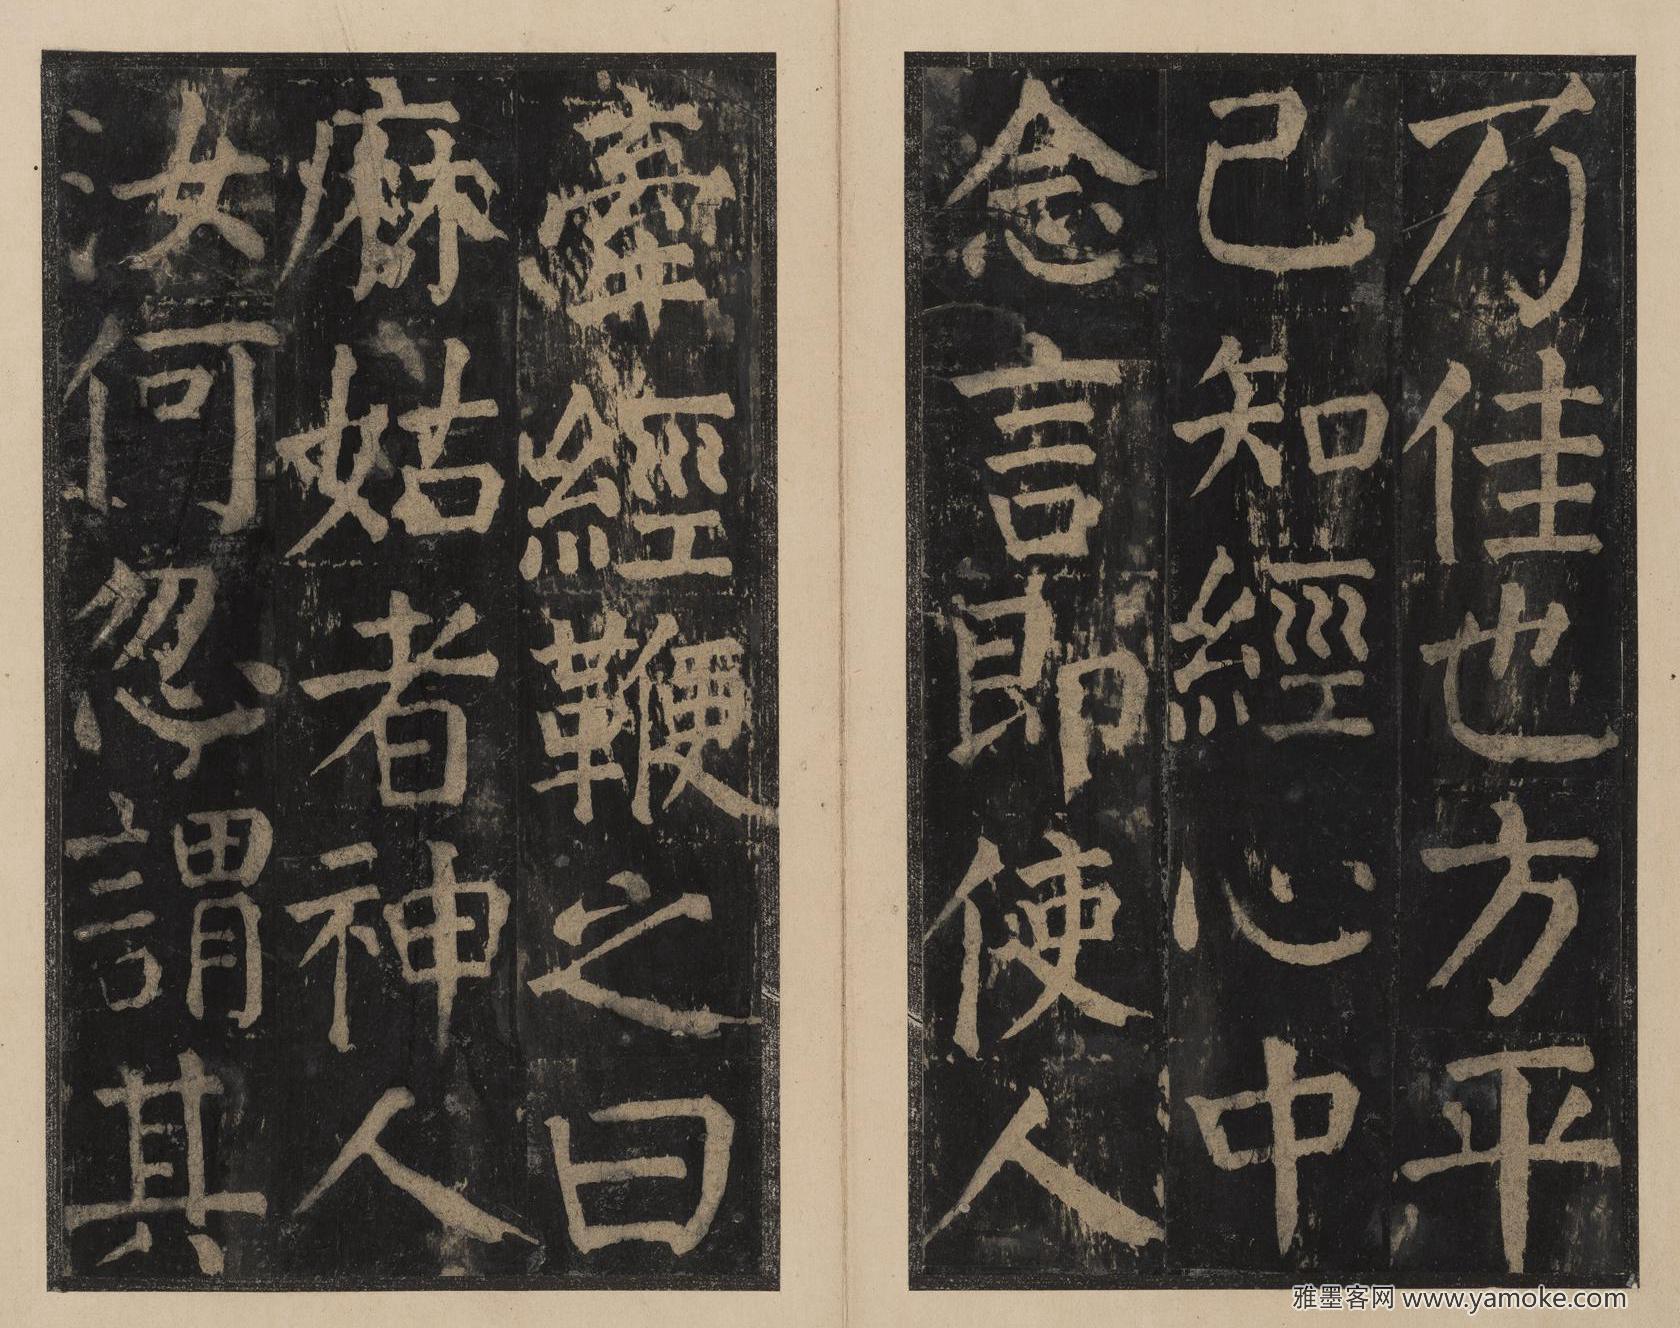 乃佳也方平
已知經心中
念言即使人
牽經鞭之曰
麻姑者神人
汝何忽謂其
雅墨客网 www.yamoke.com